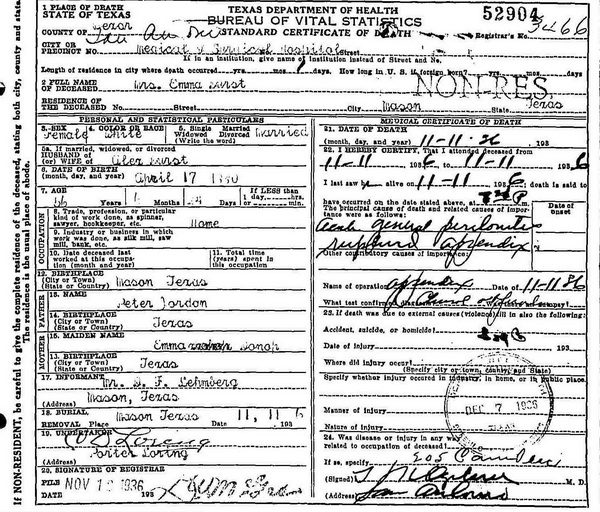 1 PLACE OF DEATH
STATE OF TEXAS
TEXAS DEPARTMENT OF HEALTH
BUREAU OF VITAL STATISTICS
STANDARD CERTIFICATE OF DEATH
52904
COUNTY OF
Registrar's No. 3466
CITY OR
PRECINCT NO. Medical & Surgical Hospital Street
If in an institution, give name of institution instead of Street and No.
Length of residence in city where death occurred yrs. mos. 1 days. How long in U. S. if foreign born? yrs. mos. days.
NON-RES.
2 FULL NAME
OF DECEASED Mrs. Emma
RESIDENCE OF
THE DECEASED No. Street City Mason State Texas
PERSONAL AND STATISTICAL PARTICULARS
3. SEX Female
4. COLOR OR RACE White
5. Single Married
Widowed Divorced
(Write the word) Married
5a. If married, widowed, or divorced
HUSBAND OF
(or) WIFE OF
6. DATE OF BIRTH
(month, day, and year) April 17
7. AGE Years Months Days
If LESS than
1 day hrs.
min.
OCCUPATION
8. Trade, profession, or particular
kind of work done, as spinner,
sawyer, bookkeeper, etc. Home
9. Industry or business in which
work was done, as silk mill, saw
mill, bank, etc.
10. Date deceased last
worked at this occupa-
tion (month and year)
11. Total time
(years) spent in
this occupation
12. BIRTHPLACE
(City or Town)
(State or Country) Mason Texas
FATHER
13. NAME
Peter Jordon
14. BIRTHPLACE
(City or Town)
(State or Country) Texas
MOTHER
15. MAIDEN NAME
Emma
13. BIRTHPLACE
(City or Town)
(State or Country) Texas
17. INFORMANT
Mr. S. F. Lehmberg
(Address) Mason, Texas
18. BURIAL
REMOVAL Place Mason Texas Date 11, 11 1936
19. UNDERTAKER
Porter Loring
(Address)
20. SIGNATURE OF REGISTRAR
FILE
DATE NOV 1 1936 193
MEDICAL CERTIFICATE OF DEATH
21. DATE OF DEATH
(month, day, and year) 11-11-36 193
22. I HEREBY CERTIFY, That I attended deceased from
11-11 1936 to 11-11 1936
I last saw h alive on 11-11 1936 death is said to
have occurred on the date stated above, at
The principal cause of death and related causes of impor-
tance were as follows:
Date of
onset
general peritonitis
ruptured appendix
Other contributory causes of importance:
Name of operation appendix Date of 11-11-36
What test confirmed
23. If death was due to external causes (violence) fill in also the following:
Accident, suicide, or homicide?
Date of injury 193
Where did injury occur?
(Specify city or town, county, and State)
Specify whether injury occurred in industry, in home, or in public place.
DEC 7 1936
Manner of injury
Nature of injury
24. Was disease or injury in any way
related to occupation of deceased?
If so, specify 205 Camden
(Signed) M. D.
(Address) San Antonio
If NON-RESIDENT, be careful to give the complete residence of the deceased, stating both city, county and state.
The residence is the usual place of abode.